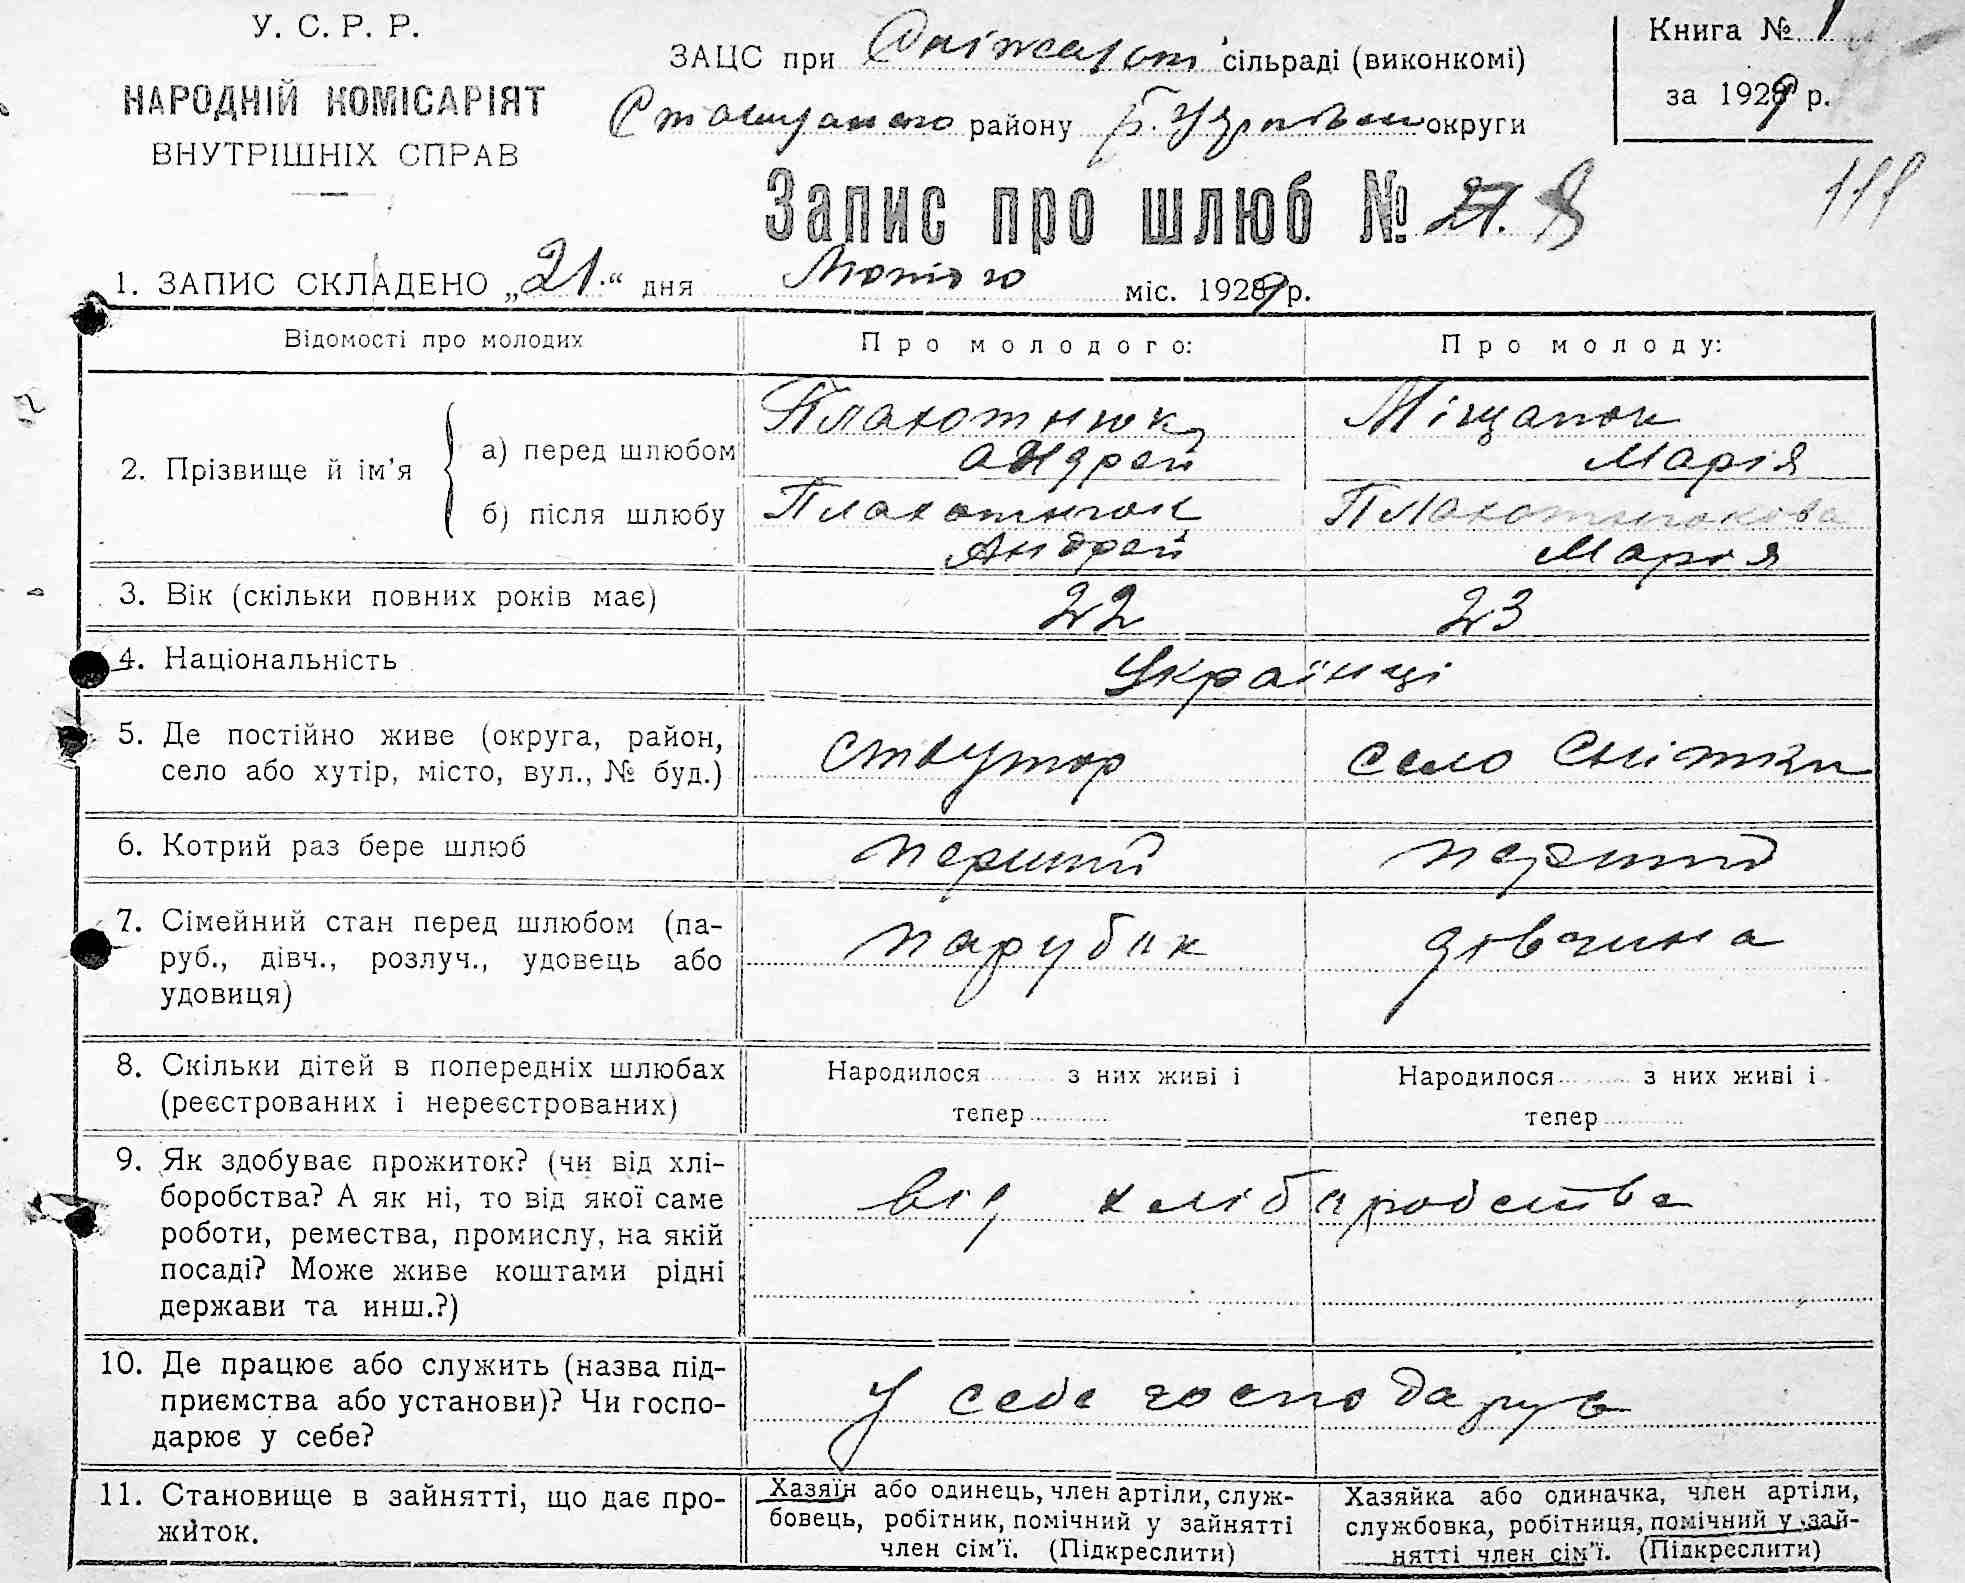 У. С. Р. Р.
НАРОДНІЙ КОМІСАРІЯТ
ВНУТРІШНІХ СПРАВ
ЗАЦС при сільраді (виконкомі)
району округи
Книга № 1
за 1929 р.
Запис про шлюб № 21. 8
111
1. ЗАПИС СКЛАДЕНО „21.“ дня Лютого міс. 1929 р.
Відомості про молодих Про молодого: Про молоду:
2. Прізвище й ім’я
а) перед шлюбом Плахотнюк Андрей Міщанюк Марія
б) після шлюбу Плахотнюк Андрей Плахотнюкова Марія
3. Вік (скільки повних років має) 22 23
4. Національність Українці
5. Де постійно живе (округа, район,
село або хутір, місто, вул., № буд.) село Сніжки
6. Котрий раз бере шлюб перший перший
7. Сімейний стан перед шлюбом (па-
руб., дівч., розлуч., удовець або
удовиця) парубак дівчина
8. Скільки дітей в попередніх шлюбах
(реєстрованих і нереєстрованих)
Народилося з них живі і
тепер
Народилося з них живі і
тепер
9. Як здобуває прожиток? (чи від хлі-
боробства? А як ні, то від якої саме
роботи, ремества, промислу, на якій
посаді? Може живе коштами рідні
держави та инш.?)
від хлібаробства
10. Де працює або служить (назва під-
приємства або установи)? Чи госпо-
дарює у себе?
у себе господарув
11. Становище в зайнятті, що дає про-
житок.
Хазяїн або одинець, член артіли, служ-
бовець, робітник, помічний у зайнятті
член сім’ї. (Підкреслити)
Хазяйка або одиначка, член артіли,
службовка, робітниця, помічний у зай-
нятті член сім’ї. (Підкреслити)